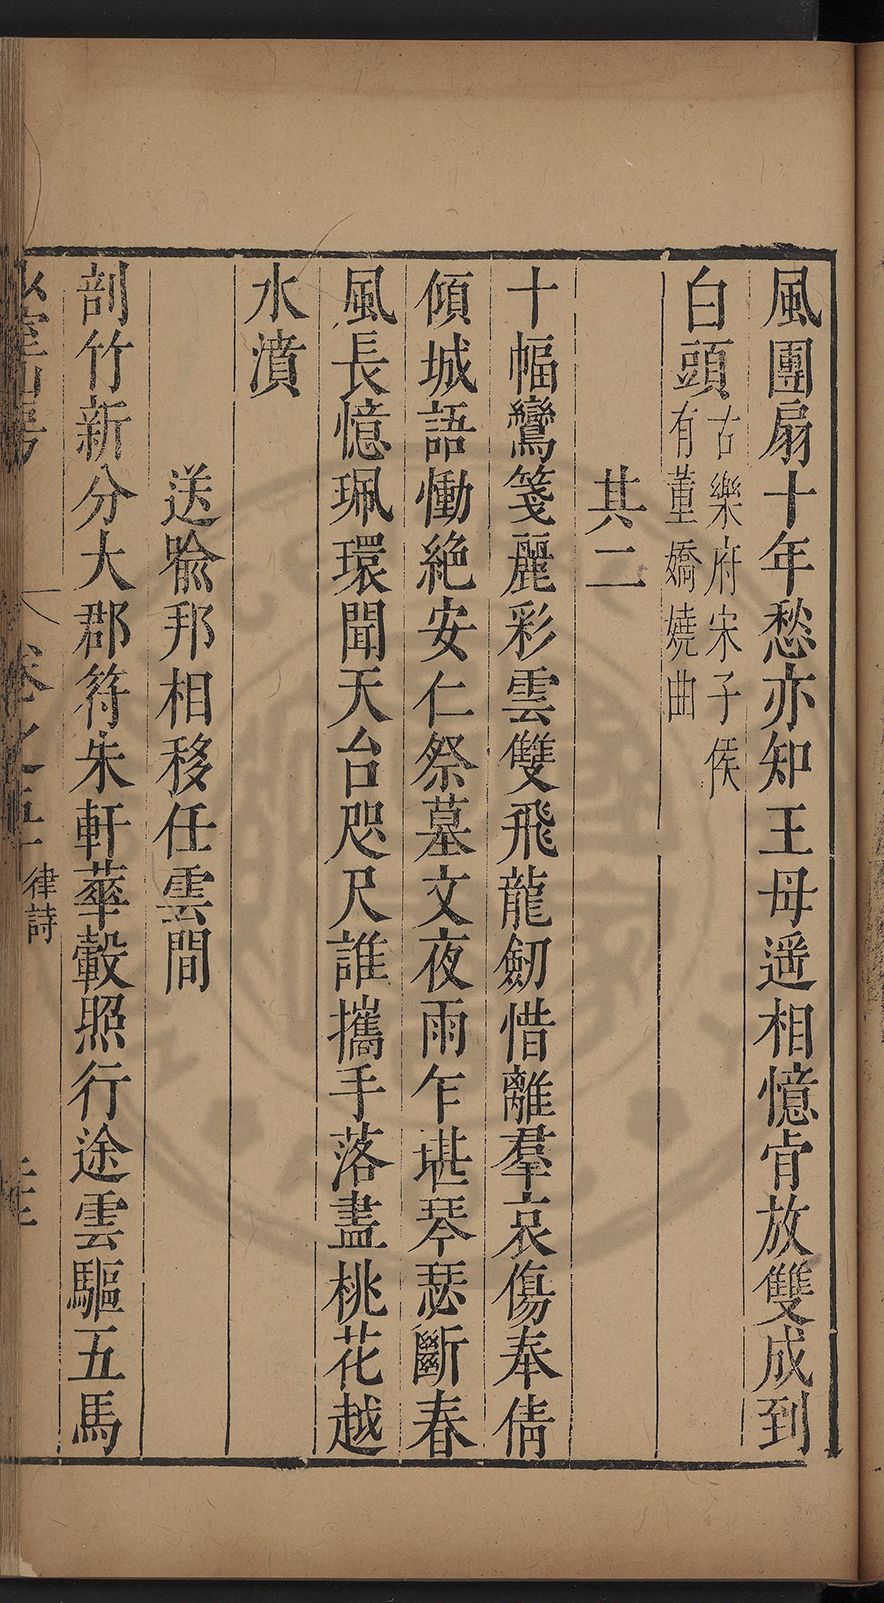 風團扇十年愁亦知王母遥相憶肯放雙成到
白頭
古樂府宋子侯
有董嬌嬈曲
其二
十幅鸞箋麗彩雲雙飛龍劒惜離羣哀傷奉倩
傾城語慟絶安仁祭墓文夜雨乍堪琴瑟斷春
風長憶珮環聞天台咫尺誰攜手落盡桃花越
水濆
送喻邦相移任雲間
剖竹新分大郡符朱軒華轂照行途雲驅五馬
卷之五十
律詩